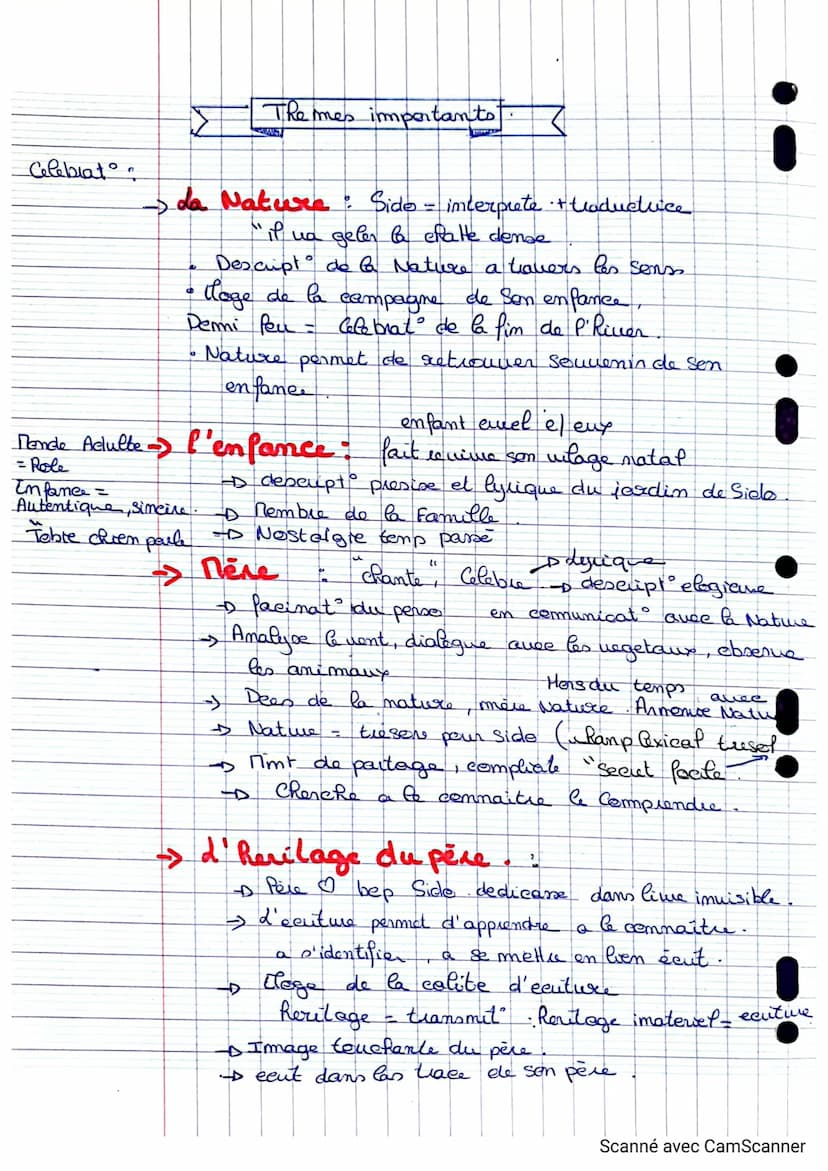 Themes importants
Celebrat° :
→ La Nature : Sido = interprete + traductrice
"il va geler la chatte dense
• Descript° de la Nature a travers les sens
• Eloge de la campagne de Son enfance,
Derni feu = Celebrat° de la fin de l'River.
• Nature permet de retrouver Souvenir de sen
enfance
enfant cruel e/ eux
Monde Adulte → l'enfance : fait revivre son vilage natal
= Role
→ descript° presise et lyrique du jardin de Sido.
Enfance =
Autentique, sincire. → Membre de la Famille.
"Tobte chien parle → Nostalgie temp passé
→ lyrique
→ Mère : "chante", Celebre → descript° elogieuse
→ facinat° du perso en comunicat° avec la Nature
→ Analyse le vent, dialogue avec les vegetaux, observe
les animaux
Hors du temps avec
→ Dees de la nature, mère Nature. Annonce Natu
→ Nature = trésore pour sido (champ lexical tresol
→ Mmt de partage, compliate "Secret facile
→ Cherche a la connaitre le Comprendre.
→ L'heritage du père. :
→ Père ♡ bcp Sido. dedicasse dans livre invisible.
→ L'ecriture permet d'apprendre a le connaître.
a s'identifier, a se mettre en lien écrit.
→ Eloge de la calite d'ecriture
Heritage = transmit°. Heritage imateriel = ecriture
→ Image touchante du père.
→ ecrit dans las trace de son père.
Scanné avec CamScanner